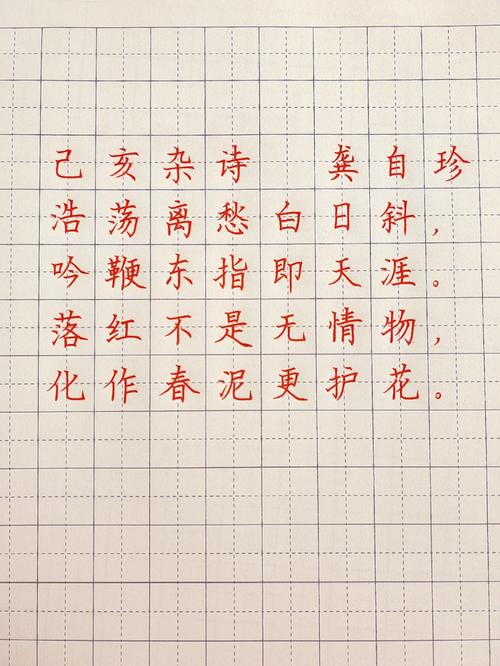 己亥杂诗 龚自珍
浩荡离愁白日斜，
吟鞭东指即天涯。
落红不是无情物，
化作春泥更护花。